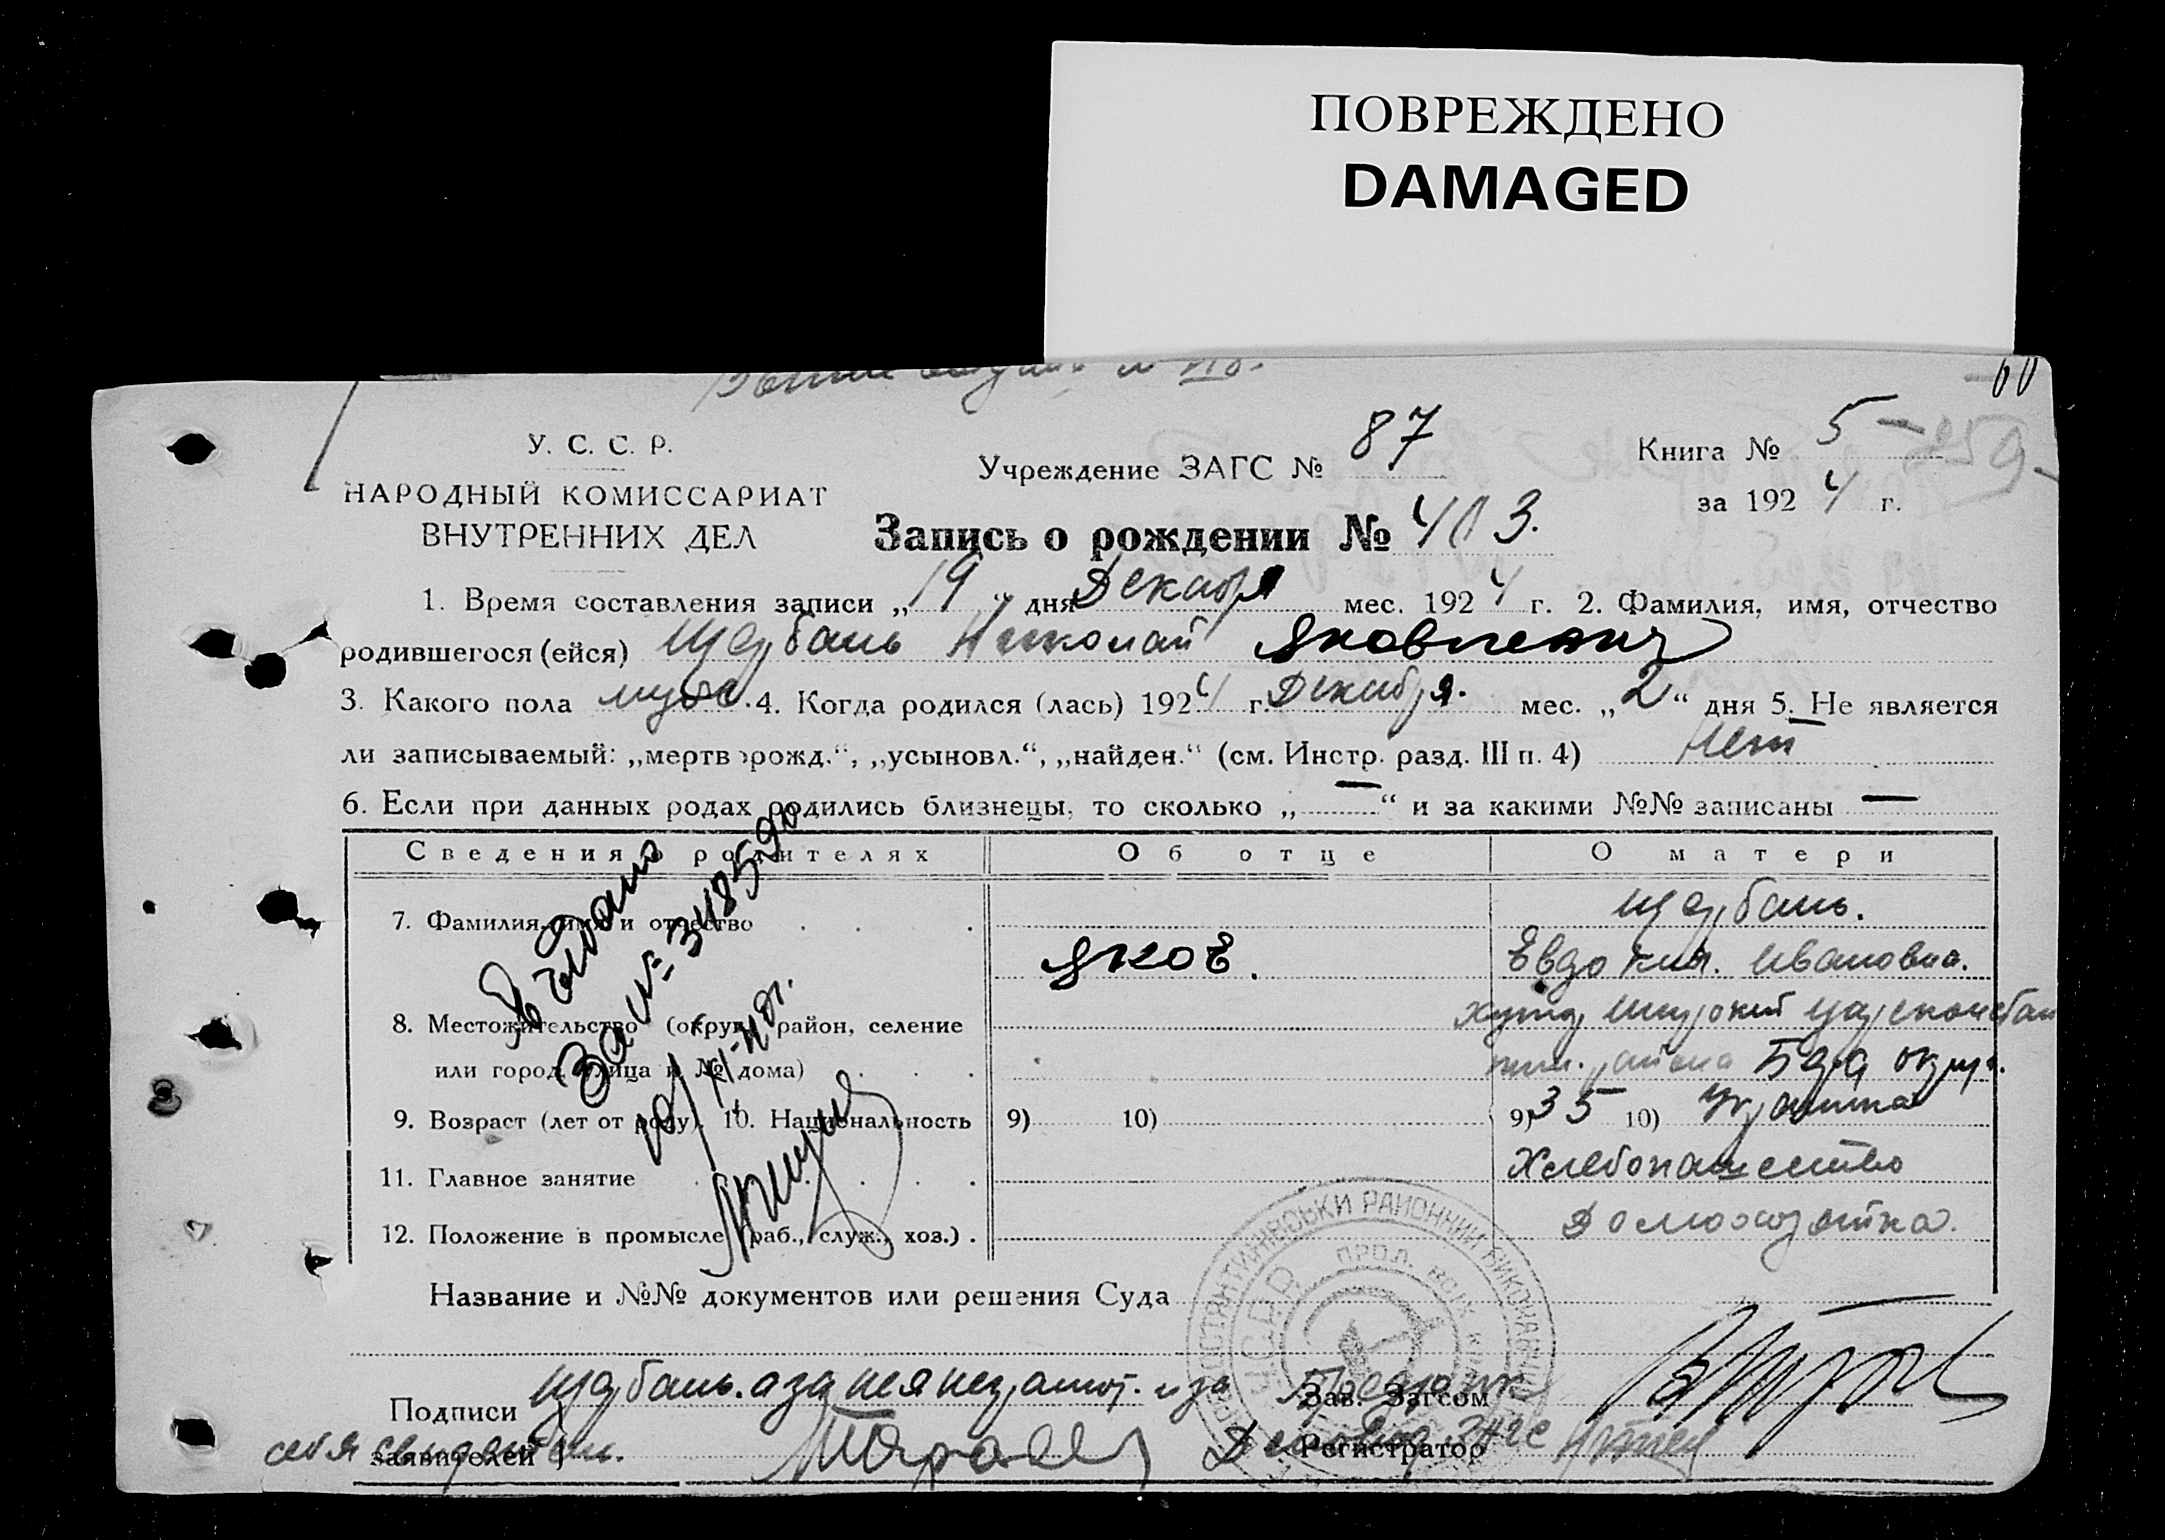 ПОВРЕЖДЕНО
DAMAGED
60
У. С. С. Р.
НАРОДНЫЙ КОМИССАРИАТ
ВНУТРЕННИХ ДЕЛ
Учреждение ЗАГС № 87
Книга № 5
за 1924 г.
Запись о рождении № 403.
1. Время составления записи „19“ дня Декабря мес. 1924 г. 2. Фамилия, имя, отчество
родившегося (ейся) Щербань Николай Яковлевич
3. Какого пола муж. 4. Когда родился (лась) 1924 г. Декабря. мес. „2“ дня 5. Не является
ли записываемый: „мертворожд.“, „усыновл.“, „найден.“ (см. Инстр. разд. III п. 4) Нет
6. Если при данных родах родились близнецы, то сколько „—“ и за какими №№ записаны —
Сведения о родителях Об отце О матери
7. Фамилия, имя и отчество Щербань.
Яков. Евдокия. Ивановна.
8. Местожительство (округ, район, селение хутор Широкий
или город, улица и № дома) района округ.
9. Возраст (лет от роду). 10. Национальность 9) 10) 9) 35 10) Украинка
11. Главное занятие Хлебопашество
12. Положение в промысле (раб., служ., хоз.). Домохозяйка.
Выдано
За №
Название и №№ документов или решения Суда
Подписи Щербань. а за нея неграмот. и за Зав. Загсом
себя заявителей Регистратор
РАЙОННИЙ
УСРР